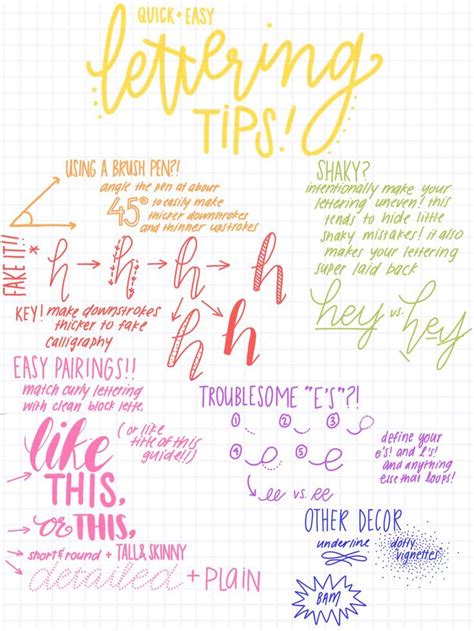 QUICK + EASY
lettering
TIPS!
USING A BRUSH PEN?!
angle the pen at about
45° to easily make
thicker downstrokes
and thinner upstrokes
SHAKY?
intentionally make your
lettering uneven! this
tends to hide little
shaky mistakes! it also
makes your lettering
super laid back
hey vs. hey
FAKE IT!! *
h → h → h → h
h h
KEY! make downstrokes
thicker to fake
calligraphy
EASY PAIRINGS!!
match curly lettering
with clean block lette.
like
(or like
title of this
guide!!)
THIS,
or THIS,
short & round + TALL & SKINNY
detailed + PLAIN
TROUBLESOME "E'S"?!
1 2 3
4 5
ee vs. ee
define your
e's! and l's!
and anything
else that loops!
OTHER DECOR
underline
dotty
vignettes
BAM